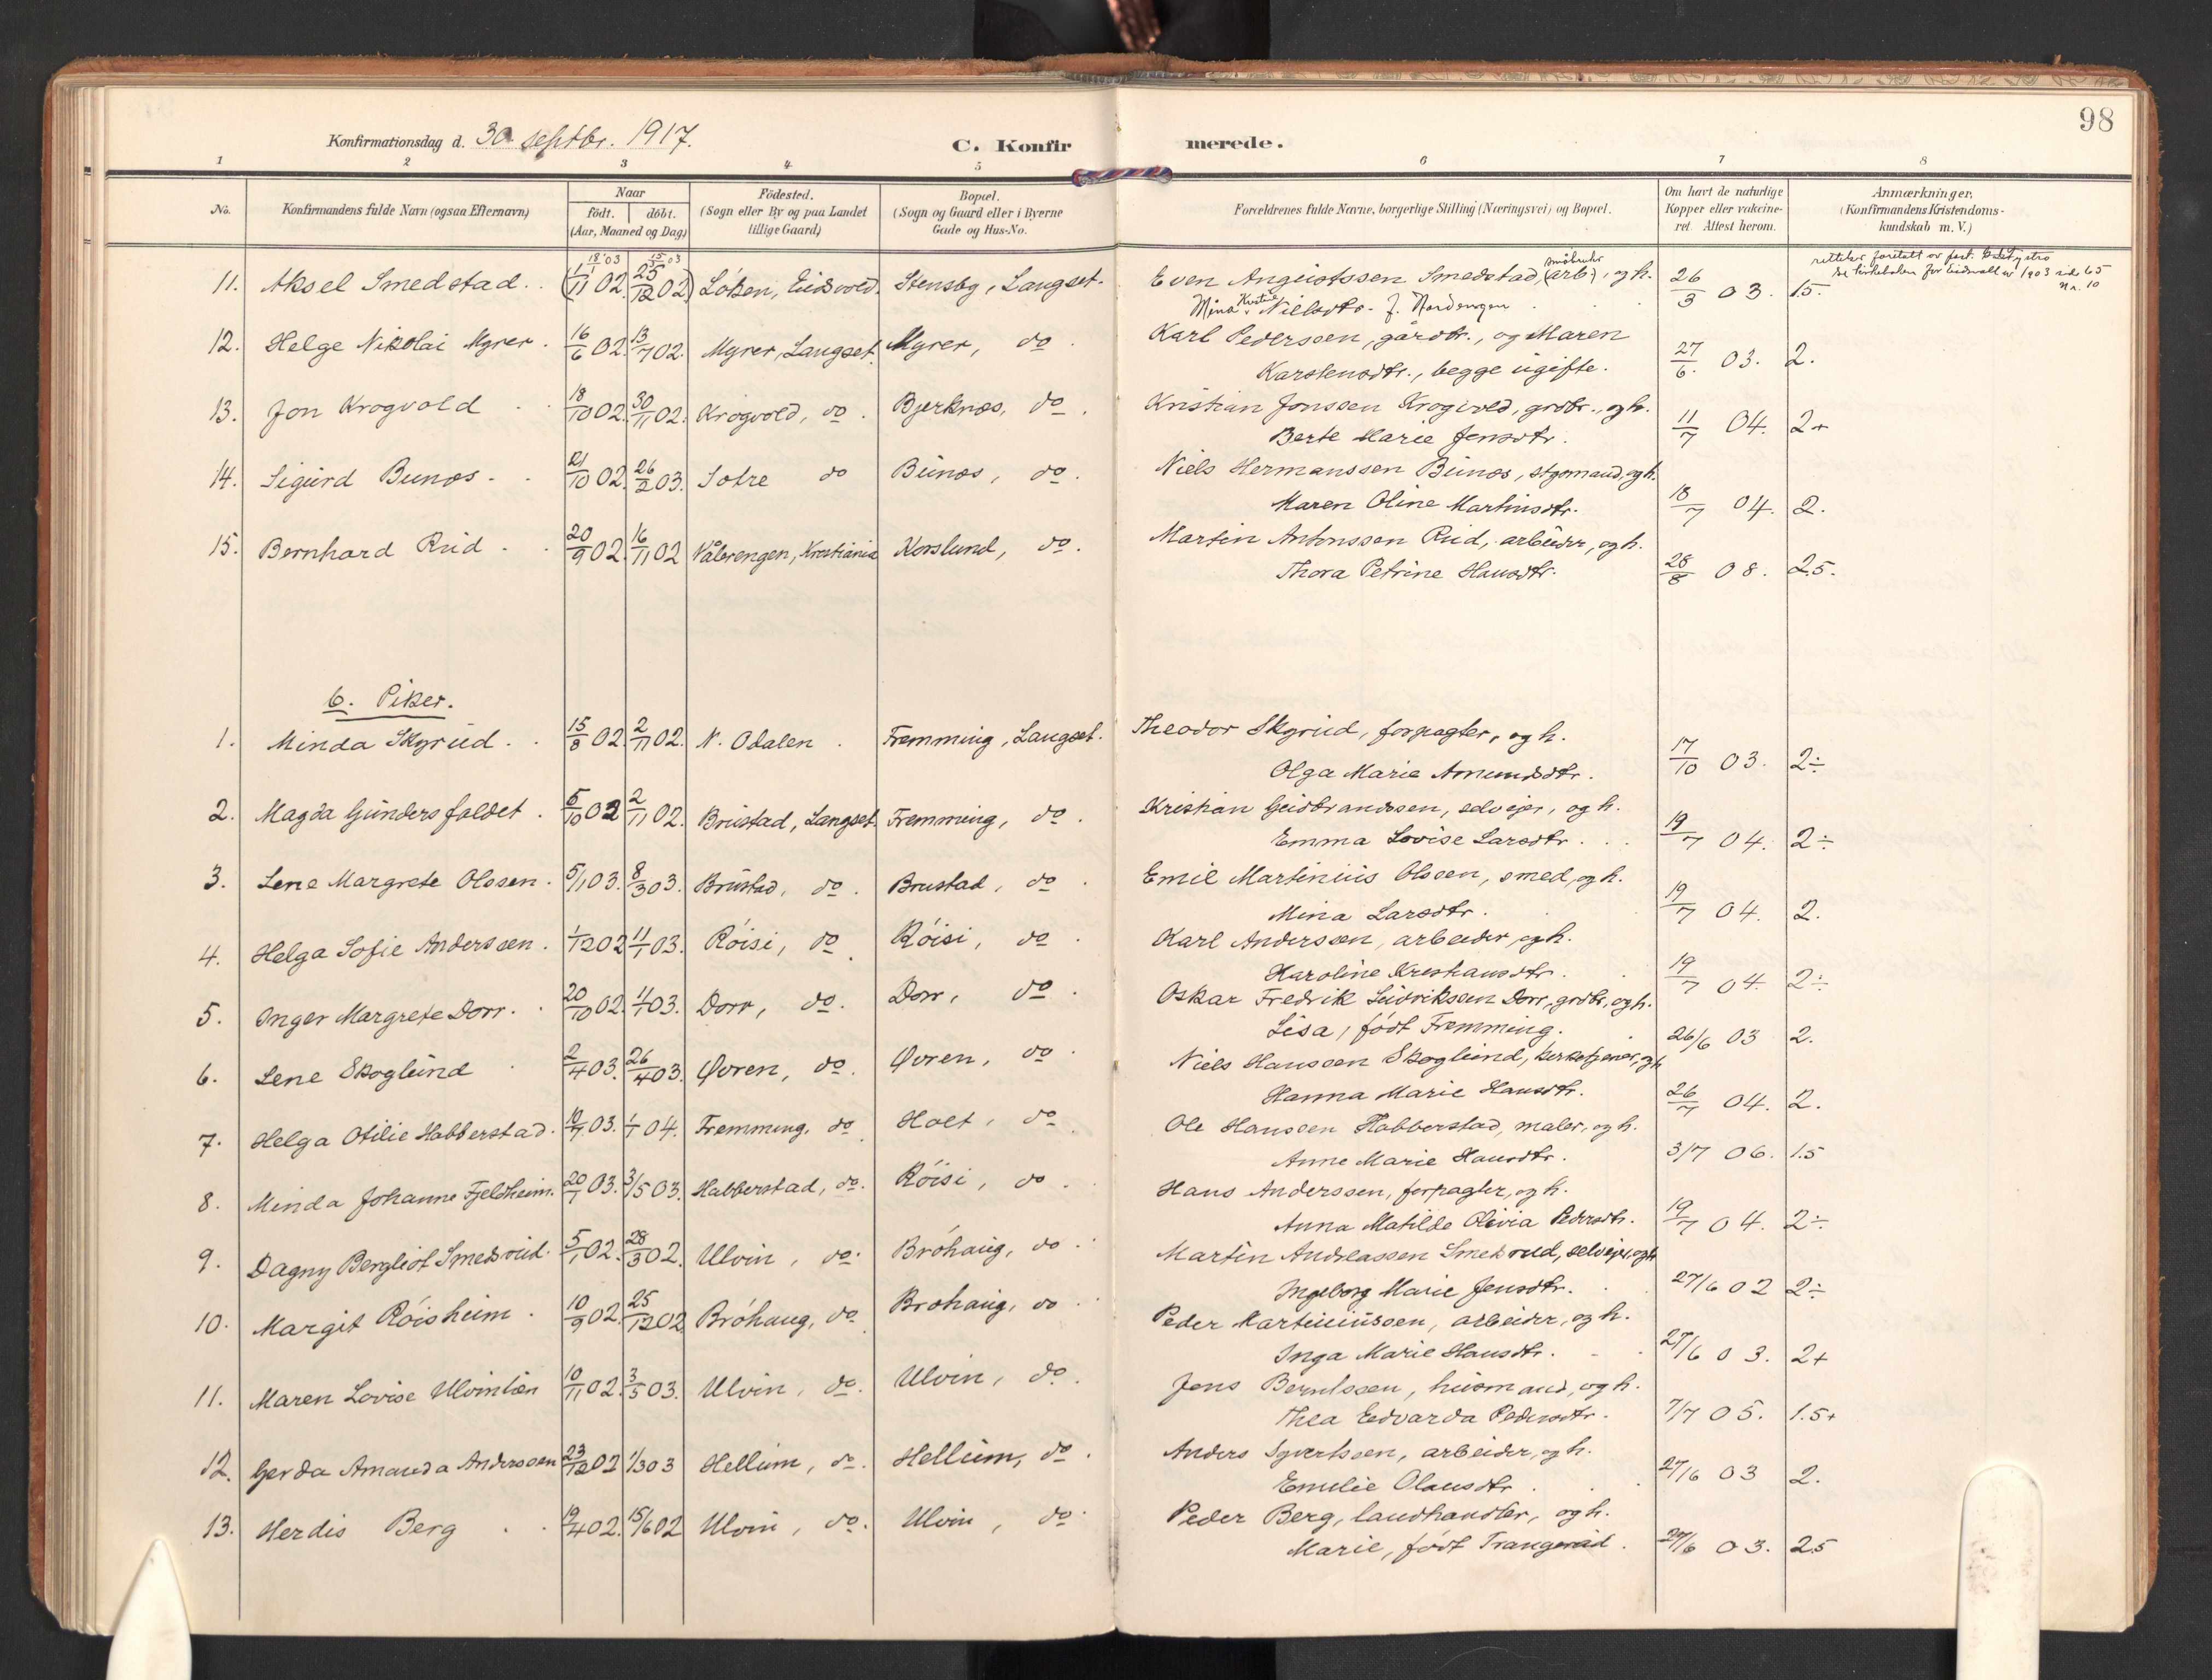 98
Konfirmationsdag d. 30 septbr. 1917.
C. Konfirmerede.
1 2 3 4 5 6 7 8
No.
Konfirmandens fulde Navn (ogsaa Efternavn)
Naar
födt. döbt.
(Aar, Maaned og Dag)
Födested.
(Sogn eller By og paa Landet
tillige Gaard)
Bopæl.
(Sogn og Gaard eller i Byerne
Gade og Hus-No.
Forældrenes fulde Navne, borgerlige Stilling (Næringsvei) og Bopæl.
Om havt de naturlige
Kopper eller vakcine-
ret. Attest herom.
Anmærkninger,
(Konfirmandens Kristendoms-
kundskab m. V.)
rettelser foretatt av
se kirkeboken for Eidsvoll av 1903 side 65
Nr. 10
18/1 03 15/3 03
småbruker
11. Aksel Smedstad. (1/11 02. 25/12 02) Löken, Eidsvold. Stensby, Langset. Even Angeiotssen Smedstad, (arb), og h. 26/3 03. 1.5.
Mina Kristine Nielsdtr. f. Nordengen
12. Helge Nikolai Myrer. 16/6 02. 13/7 02. Myrer, Langset. Myrer, do. Karl Pederssen, gårdbr., og Maren
Karstensdtr., begge ugifte. 27/6. 03. 2.
13. Jon Krogvold. 18/10 02. 30/11 02. Krogvold, do. Bjerknes, do. Kristian Jonssen Krogvold, grdbr., og h.
Berte Marie Jensdtr. 11/7 04. 2+
14. Sigurd Bunæs. 21/10 02. 26/2 03. Sotre do Bunæs, do. Niels Hermanssen Bunæs, stgsmand, og h.
Maren Oline Martinsdtr. 18/7 04. 2.
15. Bernhard Rud. 20/9 02. 16/11 02 Vålerengen, Kristiania Korslund, do. Martin Antonssen Rud, arbeider, og h.
Thora Petrine Hansdtr. 28/8 08. 2.5.
b. Piker.
1. Minda Skyrud. 15/8 02. 2/11 02. N. Odalen. Fremming, Langset. Theodor Skyrud, forpagter, og h.
Olga Marie Amundsdtr. 17/10 03. 2÷
2. Magda Gundersfaldet. 5/10 02 2/11 02. Brustad, Langset. Fremming, do. Kristian Guldbrandssen, selveier, og h.
Emma Lovise Larsdtr. 19/7 04. 2÷
3. Lene Margrete Olssen. 5/1 03. 8/3 03. Brustad, do. Brustad, do. Emil Martinius Olssen, smed, og h.
Mina Larsdtr. 19/7 04. 2.
4. Helga Sofie Anderssen. 1/12 02 11/1 03. Röisi, do. Röisi, do. Karl Anderssen, arbeider, og h.
Karoline Kristiansdtr. 19/7 04. 2÷
5. Inger Margrete Dorr. 20/10 02. 11/1 03. Dorr, do. Dorr, do. Oskar Fredrik Ludviksen Dorr, grdbr., og h.
Lisa, født Fremming. 26/6 03 2.
6. Lene Skoglund 2/4 03. 26/4 03. Øvren, do. Øvren, do. Niels Hanssen Skoglund, kirketjener, og h
Hanna Marie Hansdtr. 26/7 04. 2.
7. Helga Otilie Habberstad. 10/7 03. 1/1 04. Fremming, do Holt, do Ole Hanssen Habberstad, maler, og h.
Anne Marie Hansdtr. 3/7 06. 1.5
8. Minda Johanne Fjeldheim. 20/1 03. 3/5 03. Habberstad, do. Röisi, do. Hans Anderssen, forpagter, og h.
Anna Matilde Olivia Pedersdtr. 19/7 04. 2÷
9. Dagny Bergliot Smedsrud. 5/1 02. 28/3 02. Ulvin, do. Bröhaug, do. Martin Andreassen Smedsrud, selveier, og h
Ingeborg Marie Jensdtr. 27/6 02 2÷
10. Margit Röisheim. 10/9 02. 25/12 02 Bröhaug, do Brohaug, do. Peder Martiniussen, arbeider, og h.
Inga Marie Hansdtr. 27/6 03. 2+
11. Maren Lovise Ulvinlien 10/11 02. 3/5 03. Ulvin, do. Ulvin, do. Jens Berntssen, husmand, og h.
Thea Edvarda Pedersdtr. 7/7 05. 1.5+
12. Gerda Amanda Anderssen 23/12 02 1/3 03 Hellum, do. Hellum, do. Anders Syvertssen, arbeider, og h.
Emilie Olausdtr. 27/6 03 2.
13. Herdis Berg. 19/4 02. 15/6 02 Ulvin, do. Ulvin, do. Peder Berg, landhandler, og h.
Marie, født Trangsrud. 27/6 03. 2.5